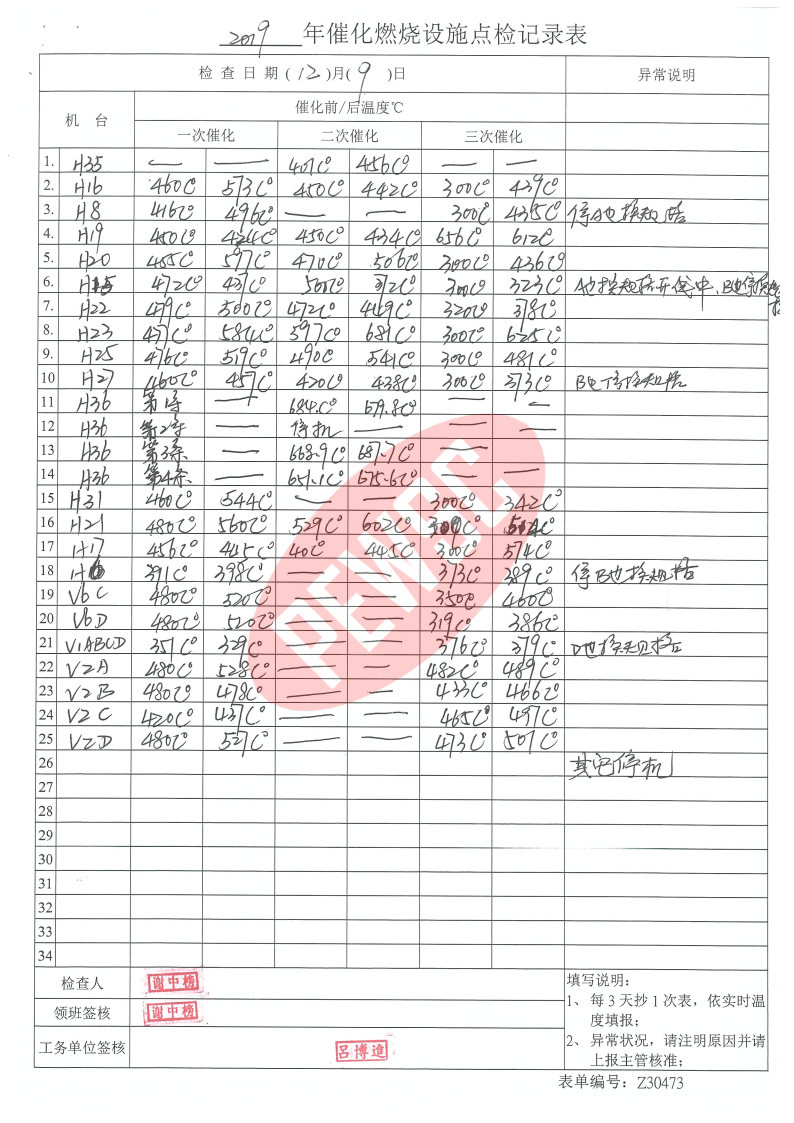 2019 年催化燃烧设施点检记录表
检查日期(12)月(9)日 异常说明
机台 催化前/后温度℃
一次催化 二次催化 三次催化
1. H35 — — 401C° 456C° — —
2. H16 460C° 573C° 450C° 442C° 300C° 439C°
3. H8 416C° 496C° — — 300C° 435C° 停A
4. H19 450C° 424C° 450C° 434C° 656C° 612C°
5. H20 455C° 597C° 470C° 506C° 300C° 436C°
6. 472C° 437C° 500C° 300C° 323C°
7. H22 479C° 500C° 472C° 449C° 320C° 378C°
8. H23 477C° 584C° 597C° 681C° 300C° 625C°
9. H25 476C° 519C° 490C° 541C° 300C° 481C°
10 H27 460C° 457C° 420C° 438C° 300C° 373C°
11 H36 第1条 — 684.C° 679.8C° — —
12 H36 第2条 — 停机 — — —
13 H36 第3条 — 668.9C° 687.7C° — —
14 H36 第4条 — 651.1C° 675.6C° — —
15 H31 460C° 544C° — — 300C° 342C°
16 H21 480C° 560C° 529C° 602C° 300C°
17 H17 456C° 445C° 40C° 445C° 300C° 374C°
18 391C° 398C° — — 373C° 389C° 停B
19 V6C 480C° 520C° — — 350C° 460C°
20 V6D 480C° 520C° — — 319C° 386C°
21 V1ABCD 351C° 329C° — — 376C° 379C°
22 V2A 480C° 528C° — — 482C° 489C°
23 V2B 480C° 478C° — — 433C° 466C°
24 V2C 420C° 437C° — — 465C° 497C°
25 V2D 480C° 527C° — — 473C° 507C°
26 其它停机
27
28
29
30
31
32
33
34
检查人 谢中榜
领班签核 谢中榜
工务单位签核 吕博進
填写说明：
1、每3天抄1次表，依实时温
度填报；
2、异常状况，请注明原因并请
上报主管核准；
表单编号：Z30473
PEWBC